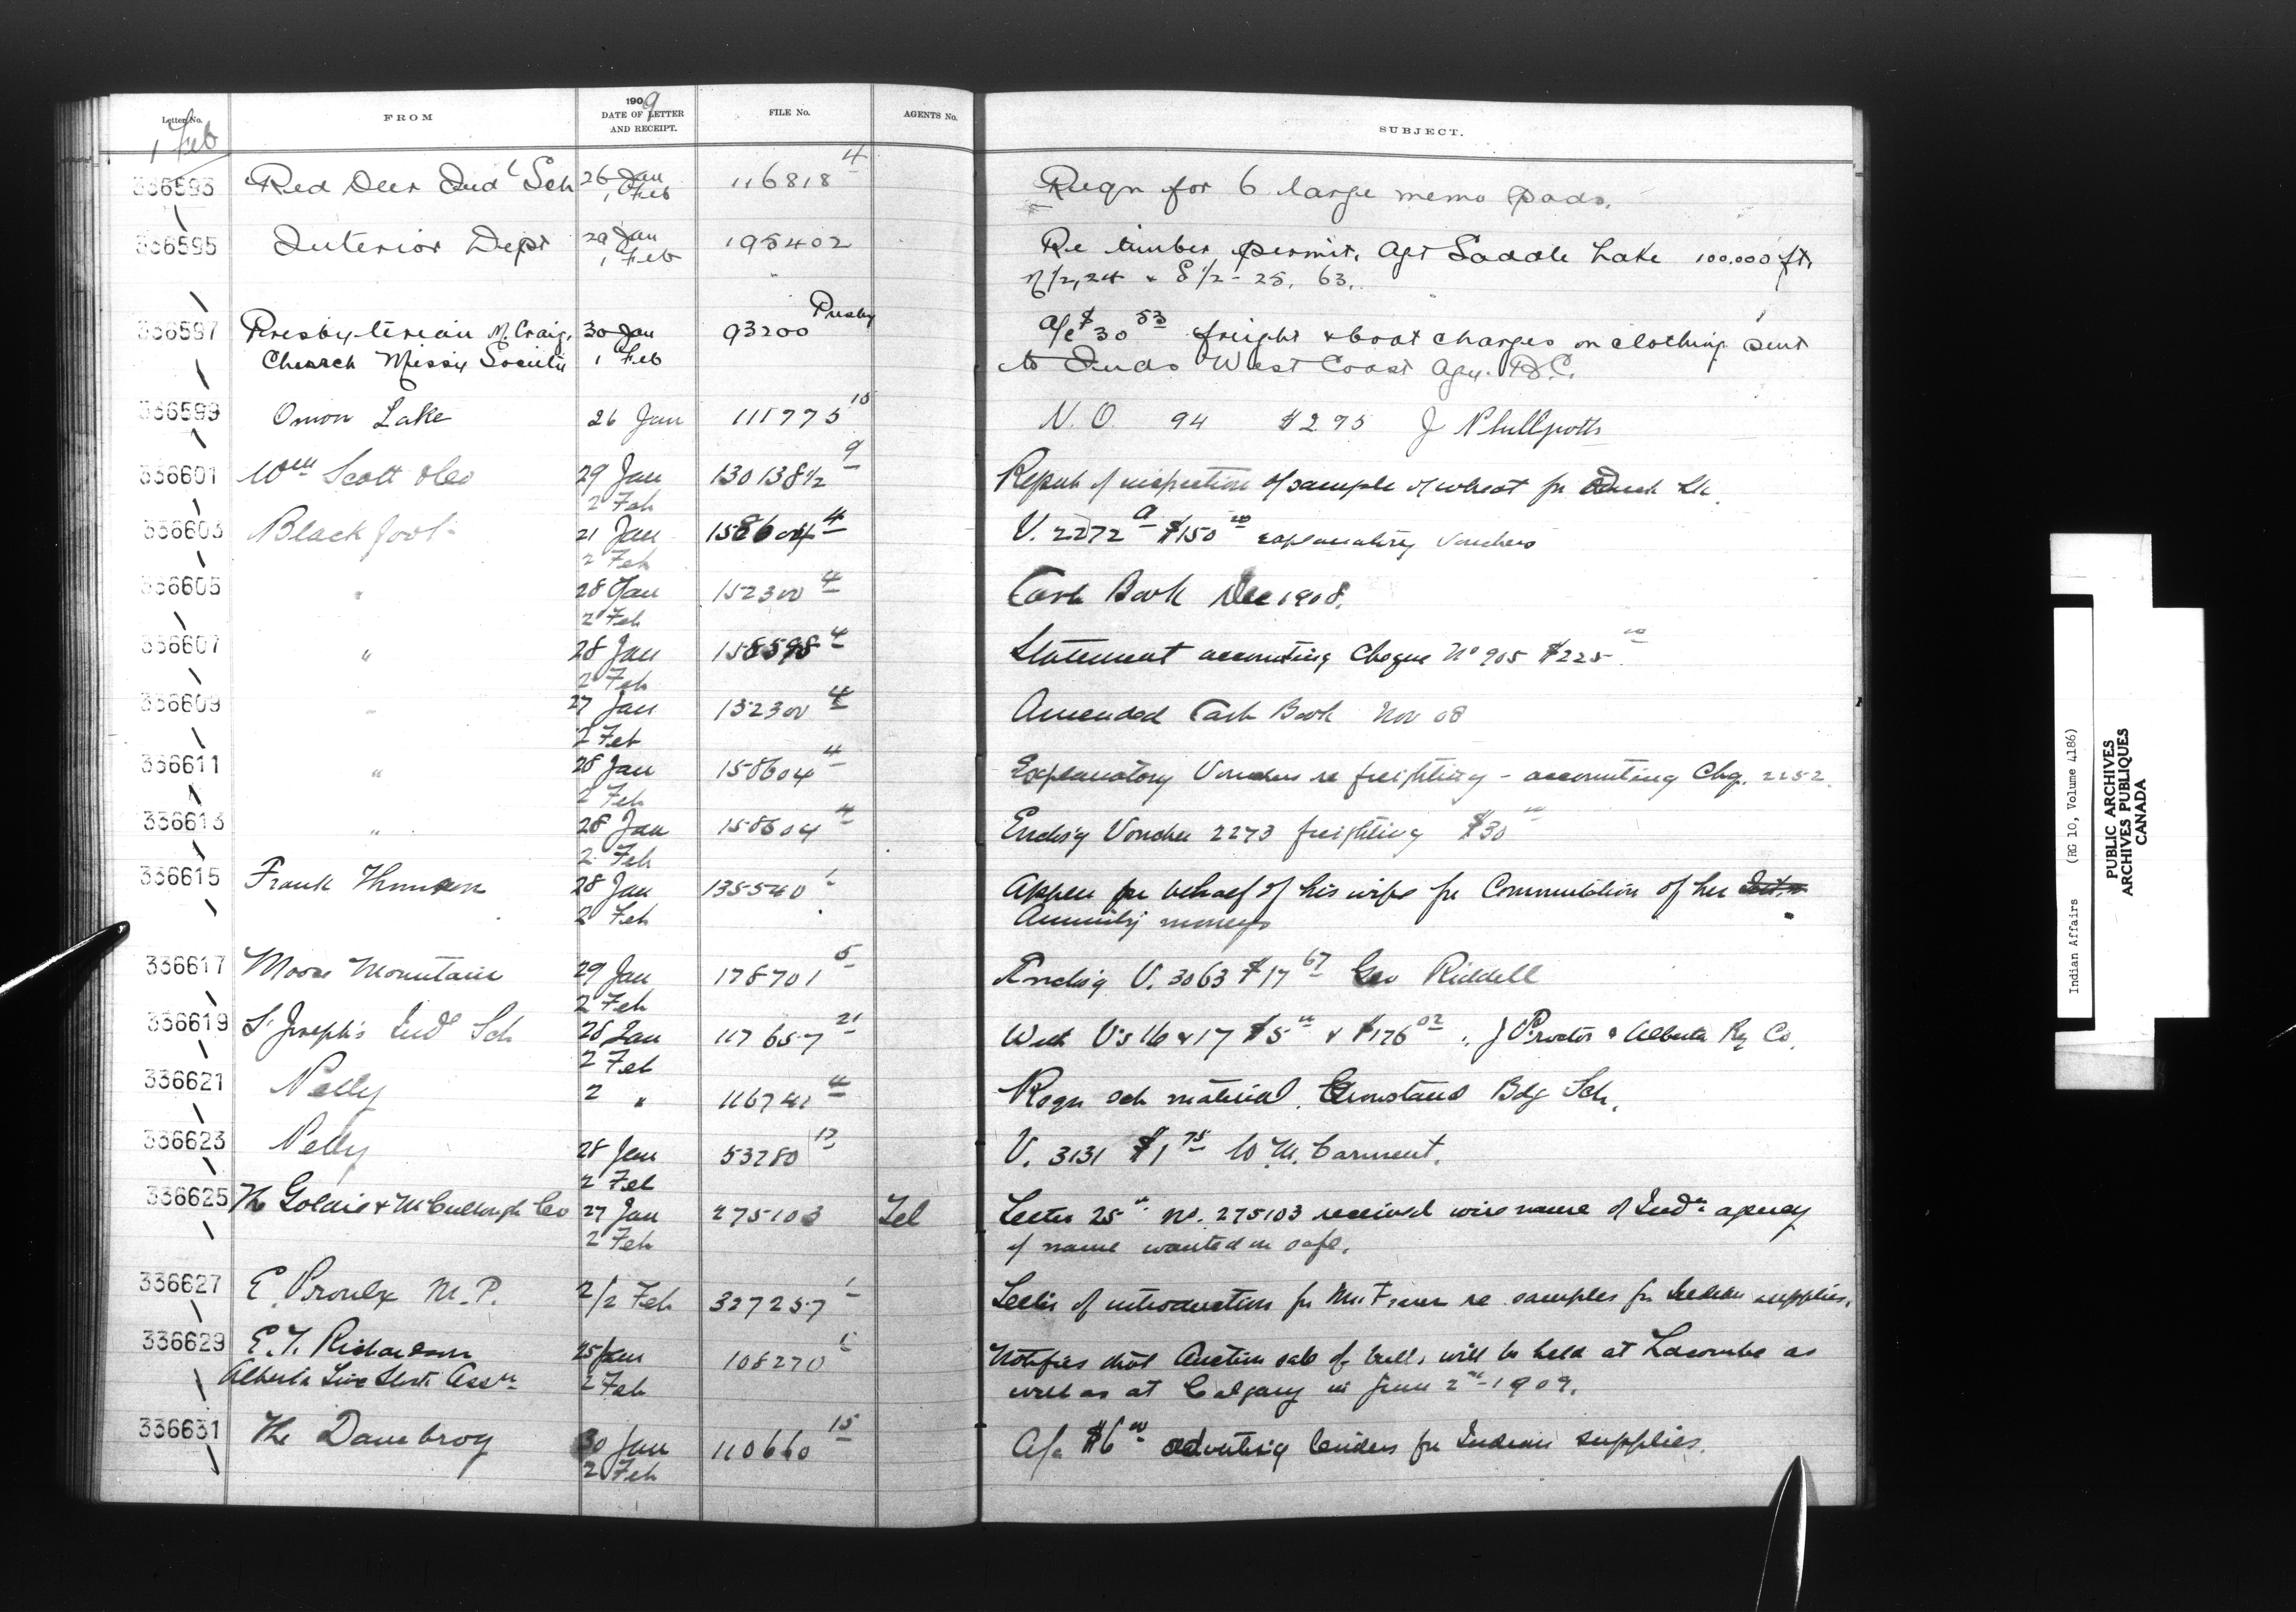 Letter No. FROM 1909 DATE OF LETTER AND RECEIPT. FILE No. AGENTS No. SUBJECT.
1 Feb
336593 Red Deer Indl Sch 26 Jan 1 Feb 116818 4 Reqn for 6 large memo pads.
336595 Interior Dept 29 Jan 1 Feb 195402 Re timber permit. Agt Saddle Lake 100.000 ft.
N 1/2, 24 & S 1/2 - 25, 63.
336597 Presbyterian M. Craig, 30 Jan 93200 Presby a/c $30 53 freight & boat charges on clothing sent
Church Missy Society 1 Feb to Inds West Coast Agy. B.C.
336599 Onion Lake 26 Jan 111775 15 N.O. 94 $2.95 J Phillpotts
336601 Wm Scott & Co 29 Jan 2 Feb 130138 1/2 9 Report of inspection of sample of wheat for Duck Lk.
336603 Blackfoot 21 Jan 2 Feb 158604 4 V. 2272 a $150 00 explanatory vouchers
336605 " 28 Jan 2 Feb 152300 4 Cash Book Dec 1908.
336607 " 28 Jan 2 Feb 158598 4 Statement accounting Cheque No 905 $225 00
336609 " 27 Jan 2 Feb 152300 4 Amended Cash Book Nov 08
336611 " 28 Jan 2 Feb 158604 4 Explanatory Vouchers re freighting - accounting Chq. 2252.
336613 " 28 Jan 2 Feb 158604 4 Enclsg Voucher 2273 freighting $30 00
336615 Frank Thomson 28 Jan 2 Feb 135540 1 Appln on behalf of his wife for Commutation of her
Annuity moneys
336617 Moose Mountain 29 Jan 2 Feb 178701 5 Enclsg V. 3063 $17 67 Geo Riddell
336619 St Joseph's Indl Sch 26 Jan 2 Feb 117657 21 With V's 16 & 17 $5 00 & $176 02. J Proctor & Alberta Ry Co.
336621 Pelly 2 " 116741 4 Reqn sch material. Crowstand Bdg Sch.
336623 Pelly 28 Jan 2 Feb 53280 13 V. 3131 $1 75 W. M. Carment.
336625 The Goldie & McCullough Co 27 Jan 2 Feb 275103 Tel Letter 25th no. 275103 received wire name of Indn agency
if name wanted on safe.
336627 E. Proulx M.P. 2/2 Feb 327257 1 Letter of introduction for Mr Fraser re samples for Indian supplies.
336629 E. L. Richardson 25 Jan 108270 1 Notifies that Auction sale of bulls will be held at Lacombe as
Alberta Live Stock Assn 2 Feb well as at Calgary in June 2nd 1909.
336631 The Danebrog 30 Jan 2 Feb 110660 15 A/c $6 00 advertising tenders for Indian supplies.
Indian Affairs (RG 10, Volume 4186)
PUBLIC ARCHIVES
ARCHIVES PUBLIQUES
CANADA